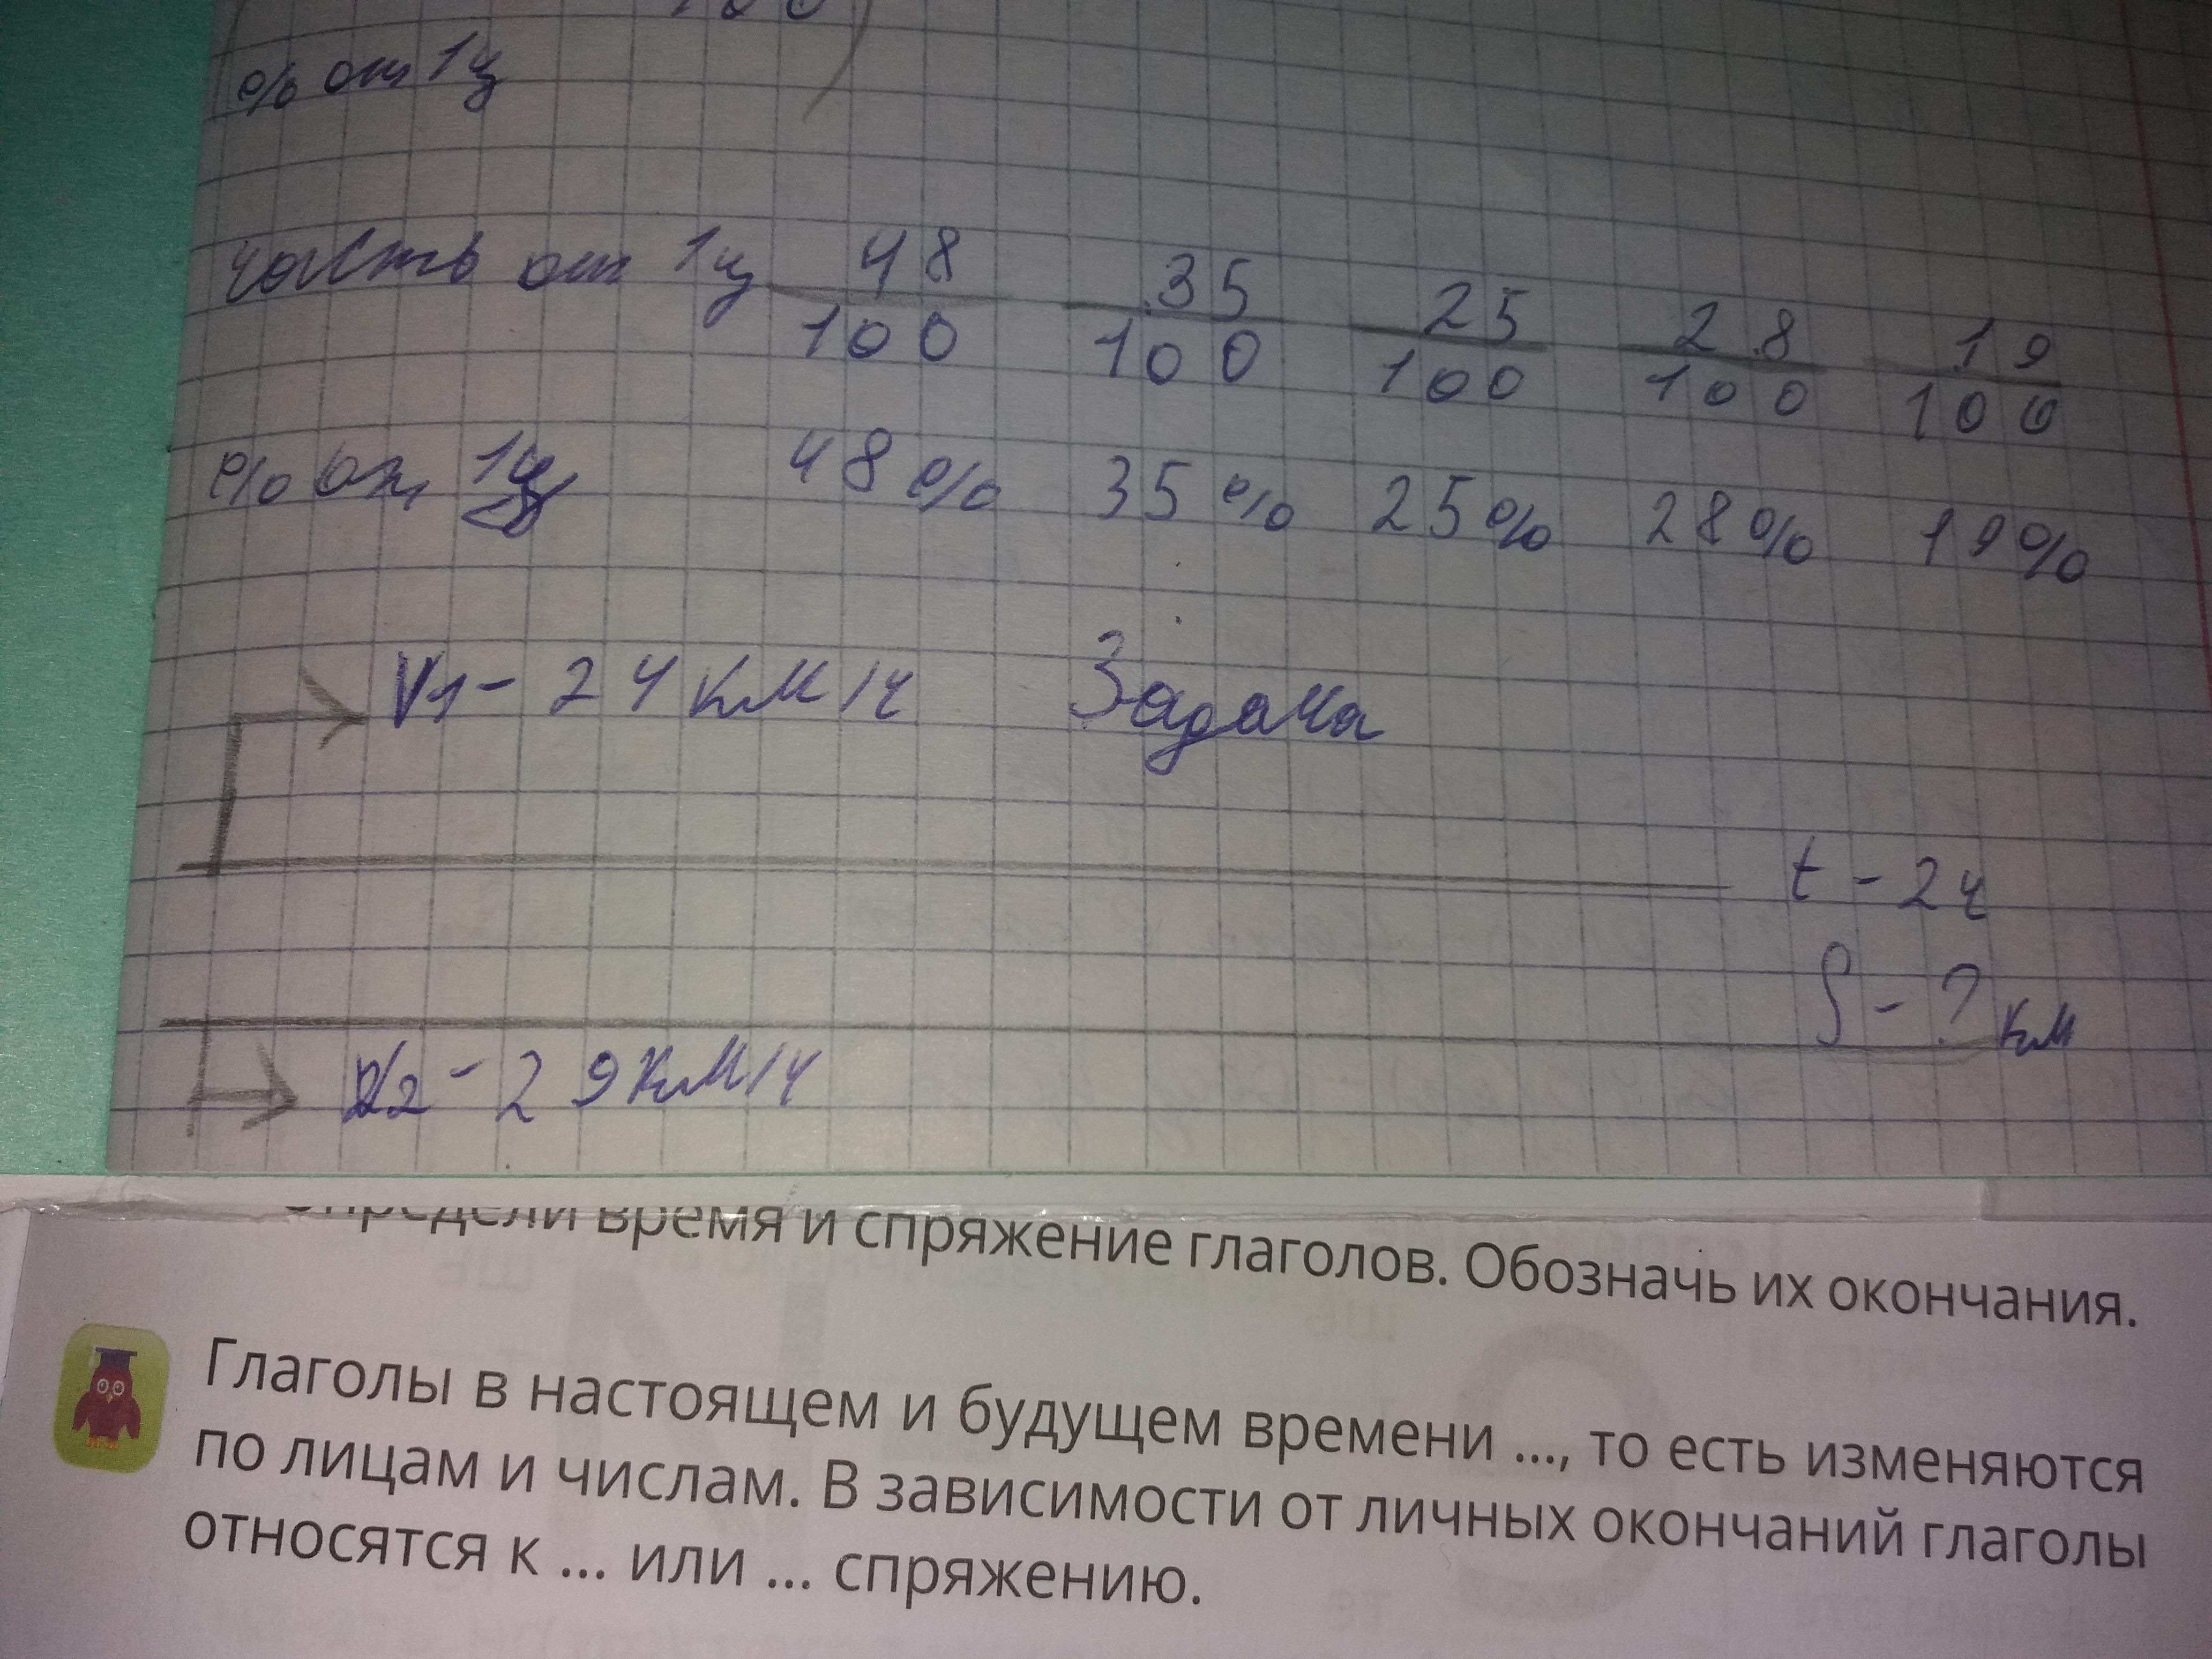 % от 1ц
часть от 1ц 48/100 35/100 25/100 28/100 19/100
% от 1ц 48% 35% 25% 28% 19%
V1 - 24 км/ч Задача
t - 2ч
S - ? км
V2 - 29 км/ч
определи время и спряжение глаголов. Обозначь их окончания.
Глаголы в настоящем и будущем времени ..., то есть изменяются
по лицам и числам. В зависимости от личных окончаний глаголы
относятся к ... или ... спряжению.